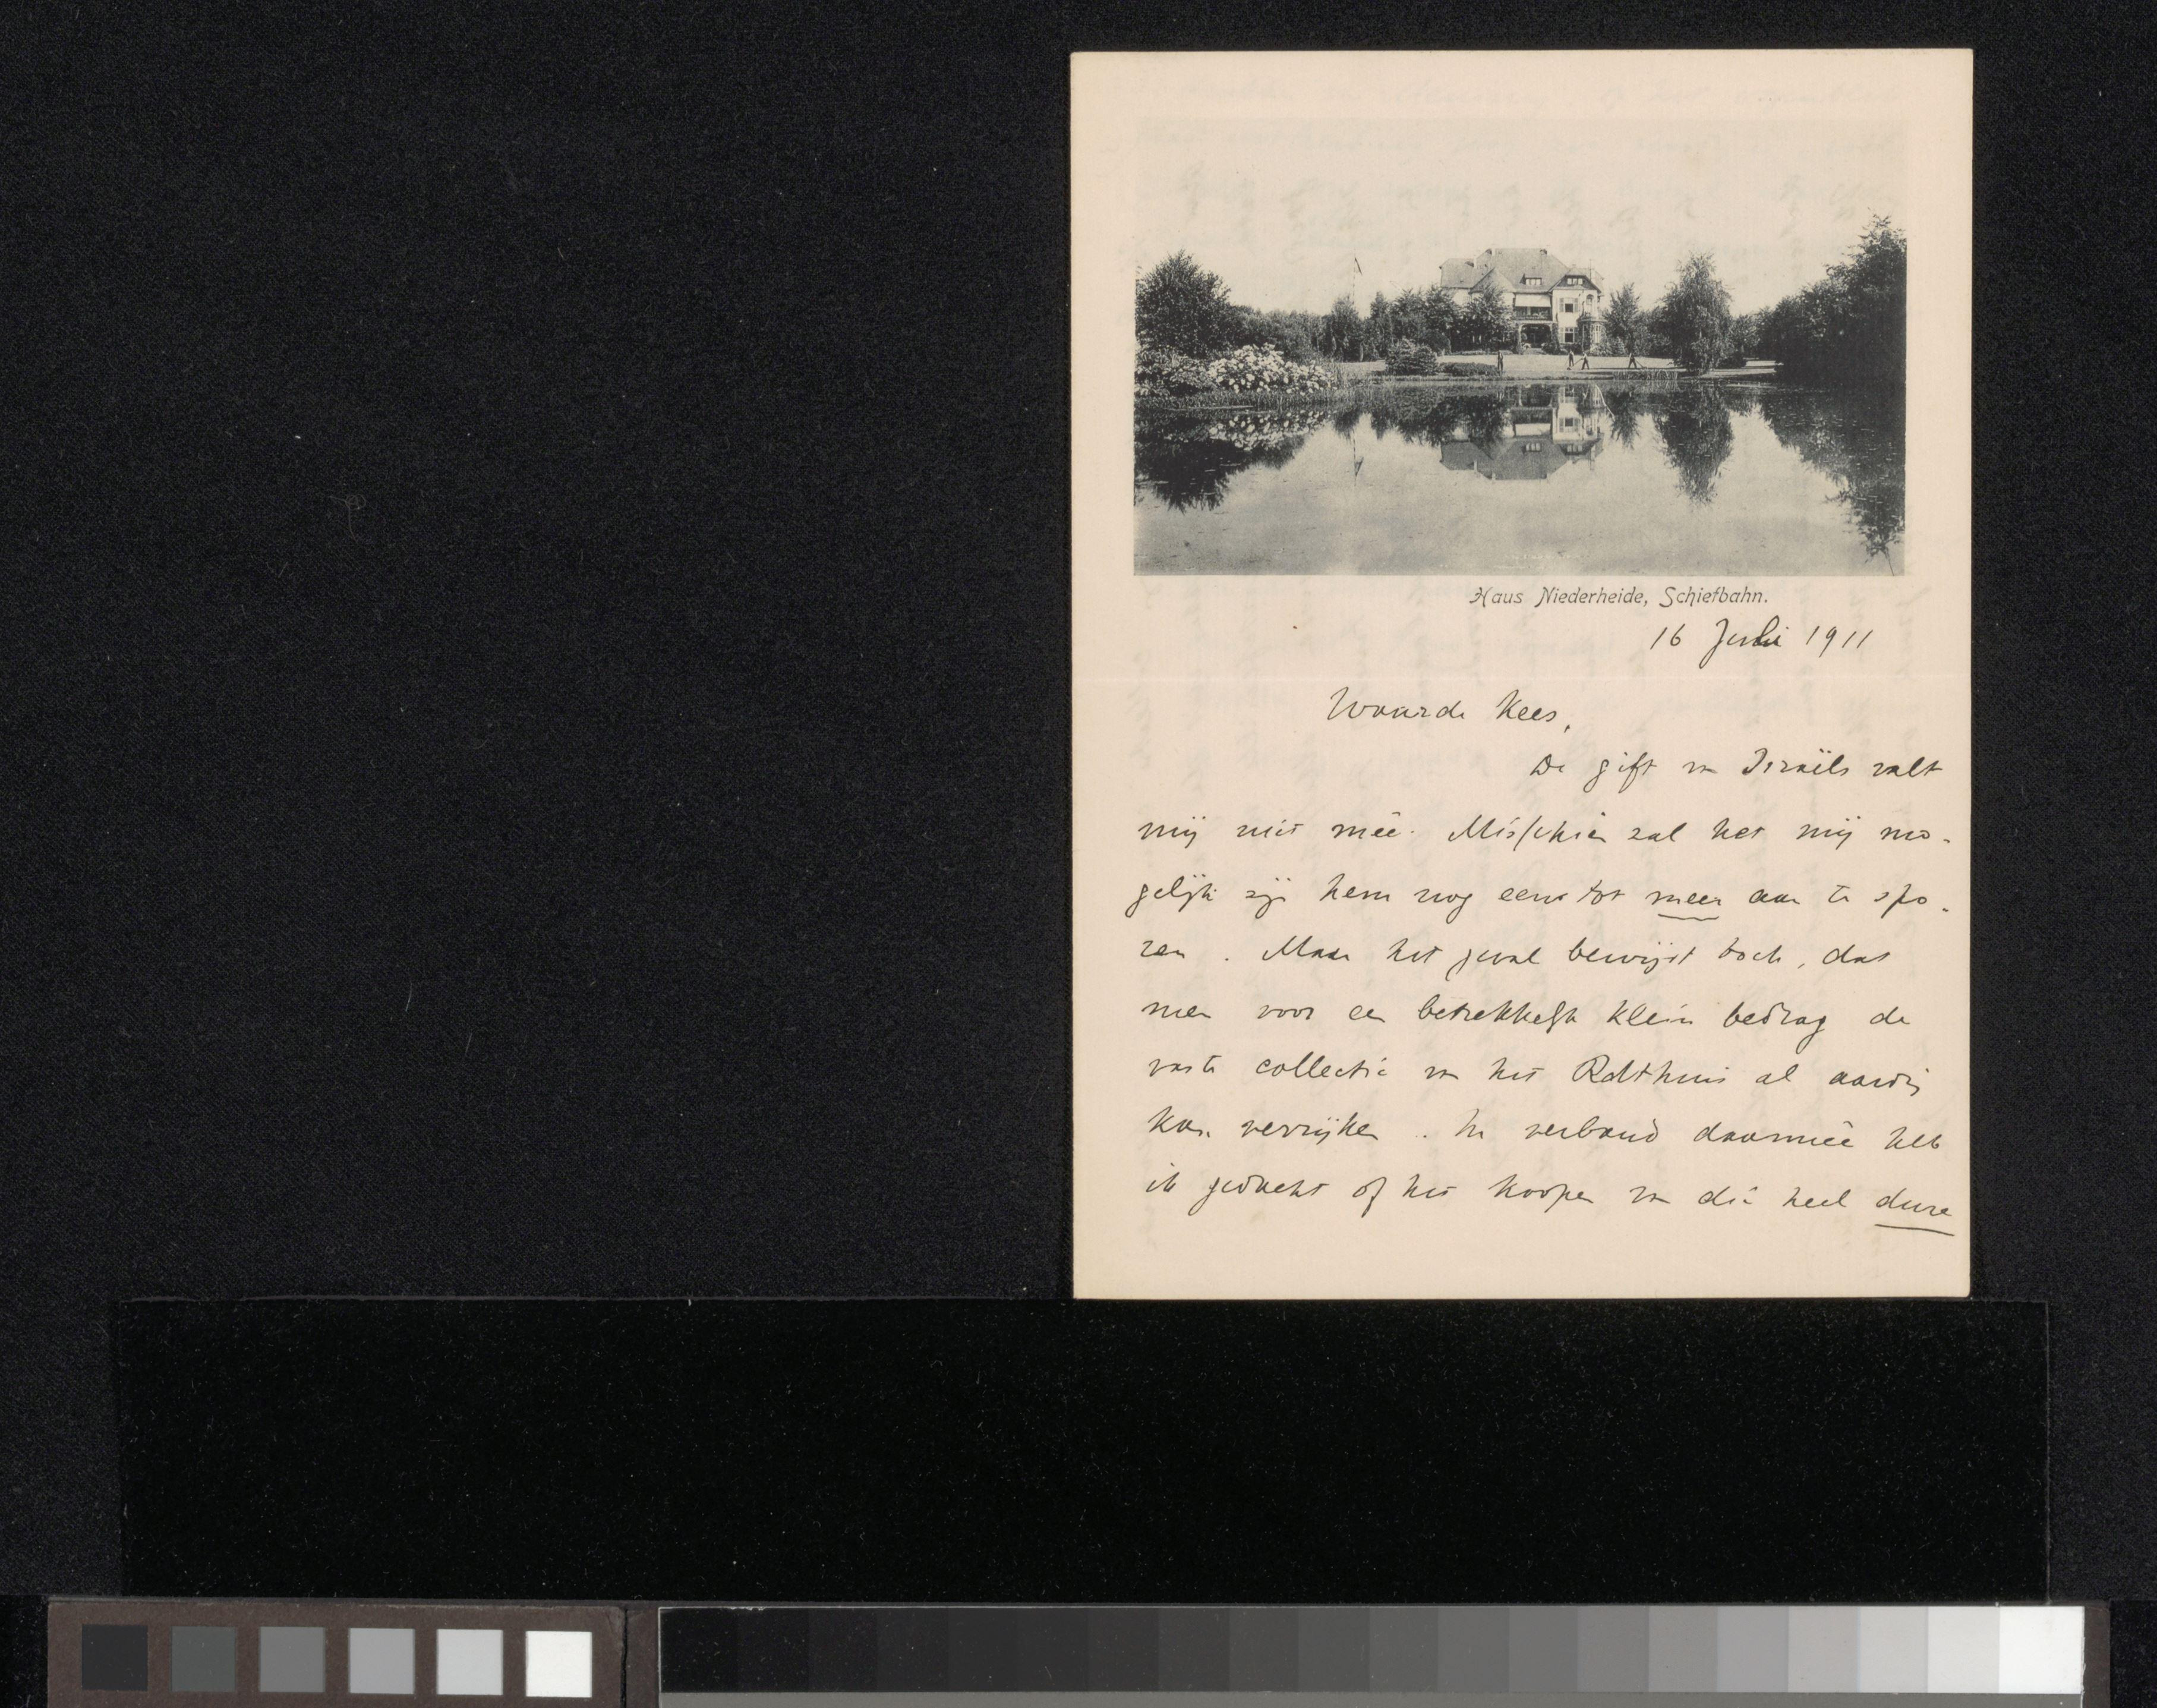 Haus Niederheide, Schiefbahn.
16 Juli 1911
Waarde Kees,
De gift van Israëls valt
mij niet meê. Misschien zal het mij mo-
gelijk zijn hem nog eens tot meer aan te spo-
ren. Maar het geval bewijst toch, dat
men voor een betrekkelijk klein bedrag de
vaste collectie van het al aardig
kan verrijken. In verband daarmeê heb
ik gedacht of het koopen van die heel dure